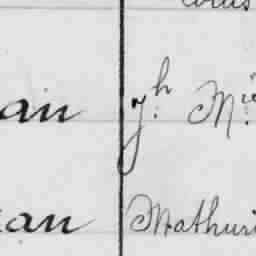 an J.h M.ie
an Mathuri